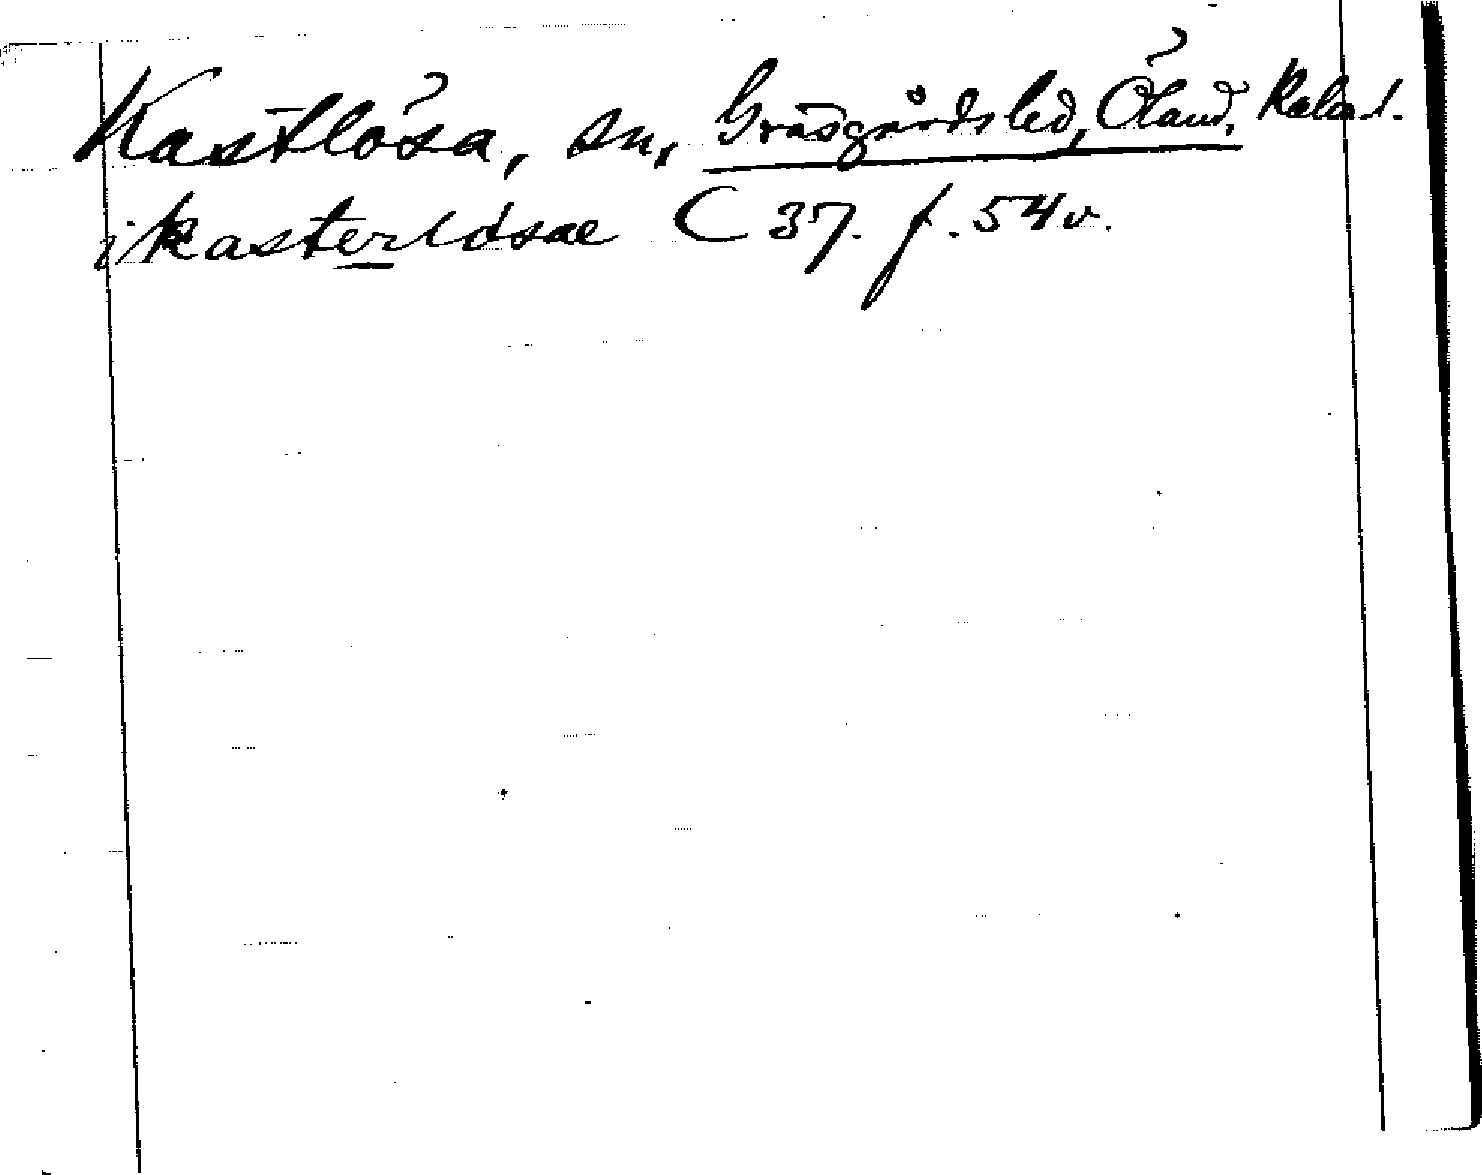 Kastlösa, sn, Gräsgårds hd, Öland, Kalm l.
i kasterløsae C 37. f. 54 v.